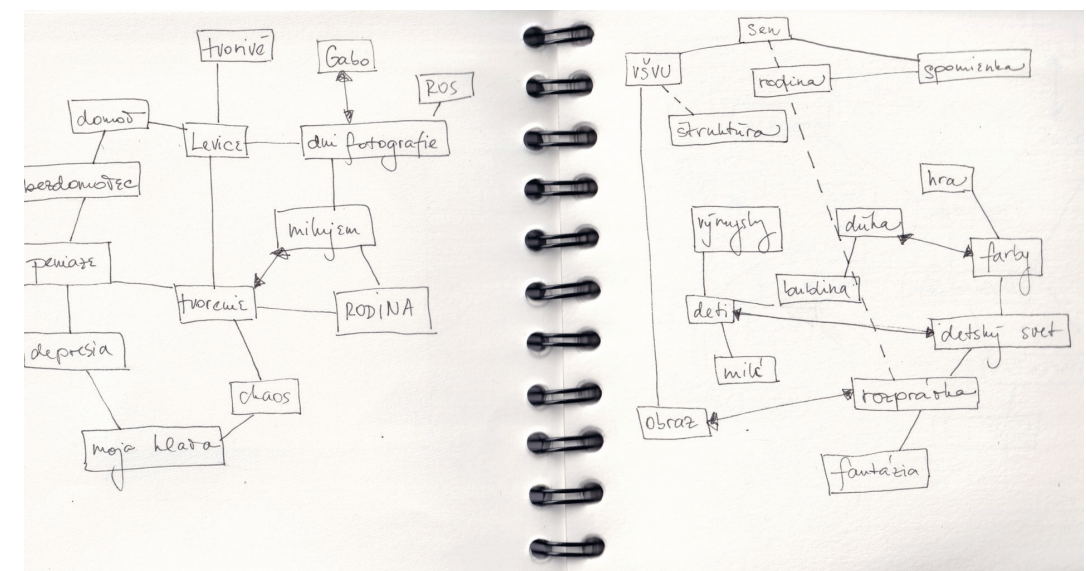 tvorivé
Gabo
ROS
domov
Levice
dni fotografie
bezdomovec
milujem
peniaze
tvorenie
RODINA
depresia
chaos
moja hlava
sen
VŠVU
rodina
spomienka
štruktúra
hra
výmysly
dúha
farby
bublina
deti
detský svet
milé
rozprávka
obraz
fantázia